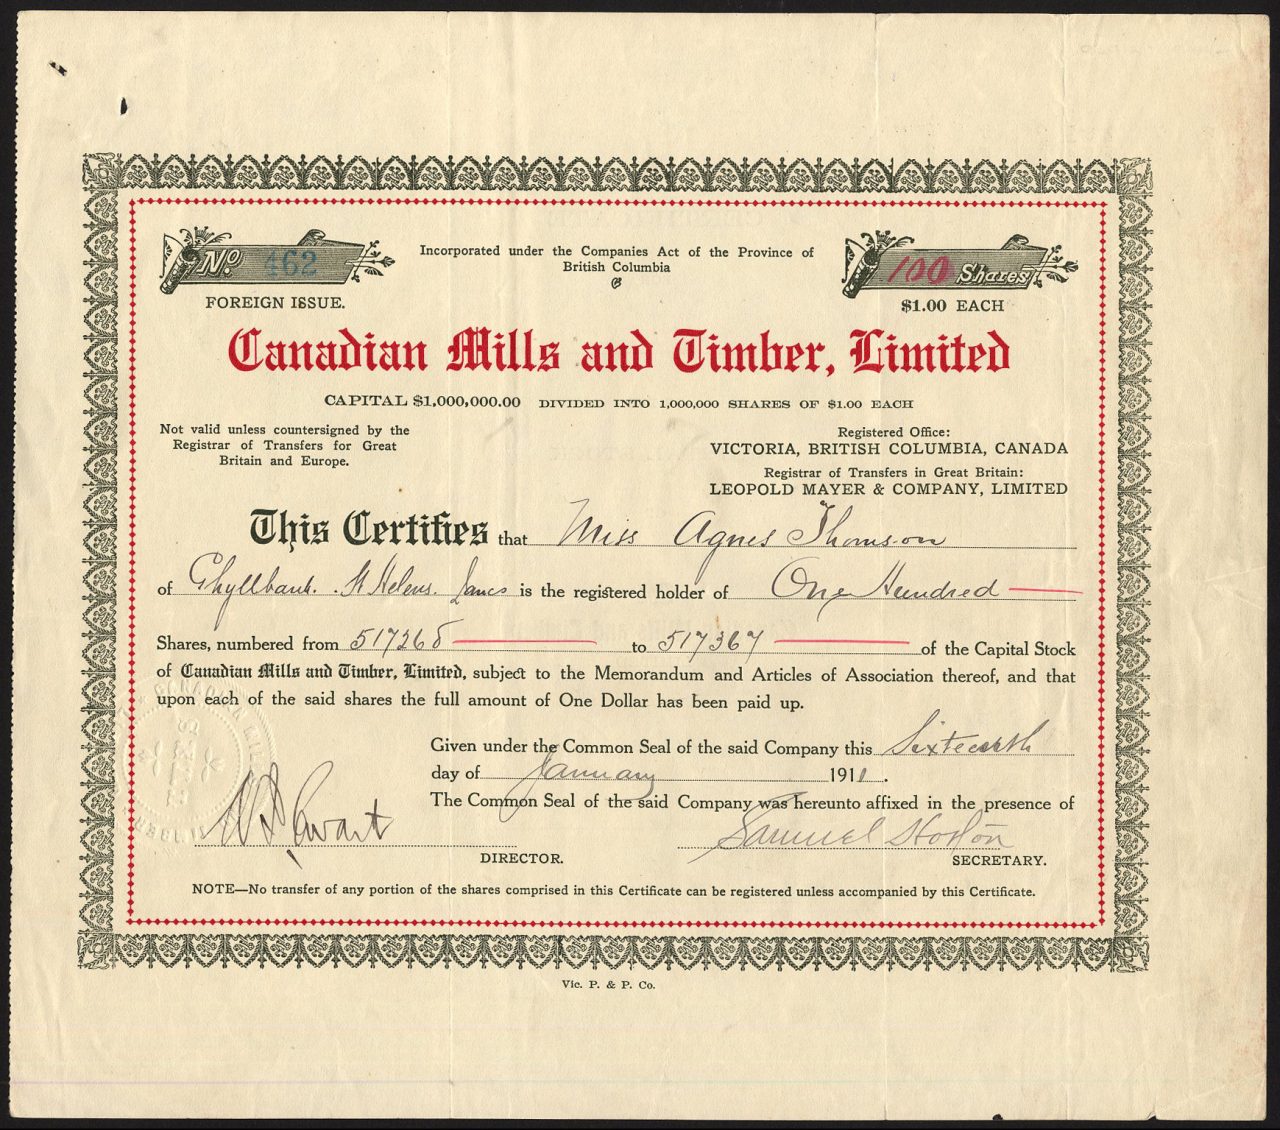 No. 462
FOREIGN ISSUE.
Incorporated under the Companies Act of the Province of
British Columbia
100 Shares
$1.00 EACH
Canadian Mills and Timber, Limited
CAPITAL $1,000,000.00 DIVIDED INTO 1,000,000 SHARES OF $1.00 EACH
Not valid unless countersigned by the
Registrar of Transfers for Great
Britain and Europe.
Registered Office:
VICTORIA, BRITISH COLUMBIA, CANADA
Registrar of Transfers in Great Britain:
LEOPOLD MAYER & COMPANY, LIMITED
This Certifies that Miss Agnes Thomson
of Ghyllbank. St Helens. Lancs is the registered holder of One Hundred
Shares, numbered from 517268 to 517367 of the Capital Stock
of Canadian Mills and Timber, Limited, subject to the Memorandum and Articles of Association thereof, and that
upon each of the said shares the full amount of One Dollar has been paid up.
Given under the Common Seal of the said Company this Sixteenth
day of January 1911.
The Common Seal of the said Company was hereunto affixed in the presence of
Samuel Horton
DIRECTOR.
SECRETARY.
NOTE—No transfer of any portion of the shares comprised in this Certificate can be registered unless accompanied by this Certificate.
Vic. P. & P. Co.